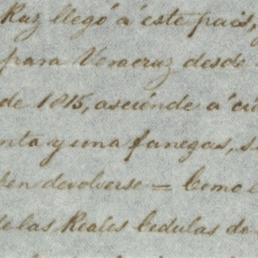 Ruz llegó á este pais,
para Veracruz desde
de 1815, asciende á
y una fanegas,
devolverse = Como
de las Reales Cedulas de